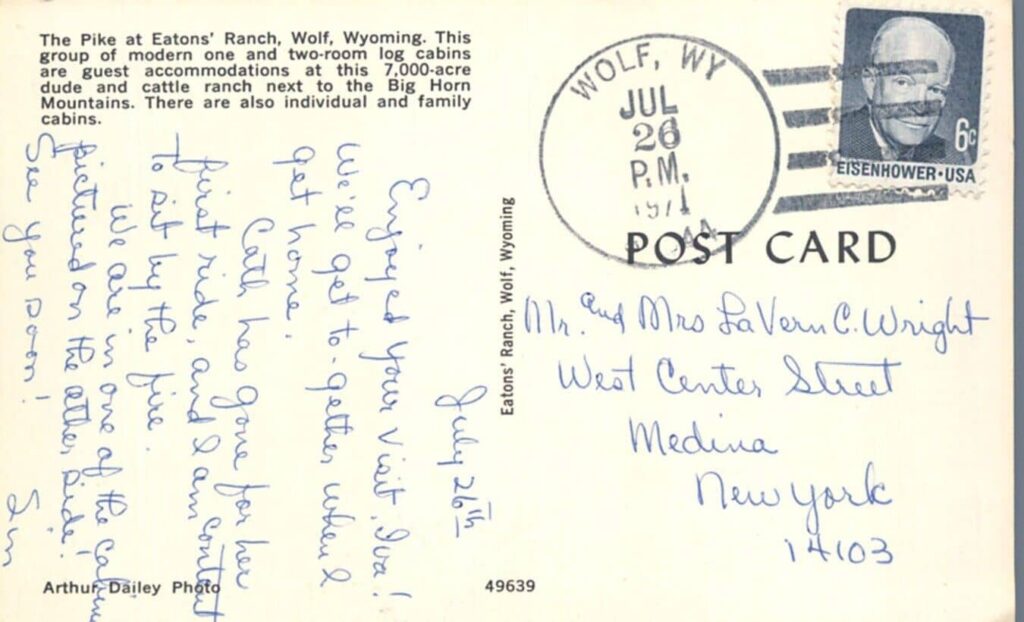 The Pike at Eatons' Ranch, Wolf, Wyoming. This
group of modern one and two-room log cabins
are guest accommodations at this 7,000-acre
dude and cattle ranch next to the Big Horn
Mountains. There are also individual and family
cabins.
July 26th
Enjoyed your visit, Iva!
We'll get to-gether when I
get home.
Cath has gone for her
first ride, and I am content
to sit by the fire.
We are in one of the cabins
pictured on the other side!
See you soon!
Arthur Dailey Photo
49639
Eatons' Ranch, Wolf, Wyoming
WOLF, WY
JUL
26
P.M.
1971
6c
EISENHOWER·USA
POST CARD
Mr. and Mrs LaVern C. Wright
West Center Street
Medina
New York
14103